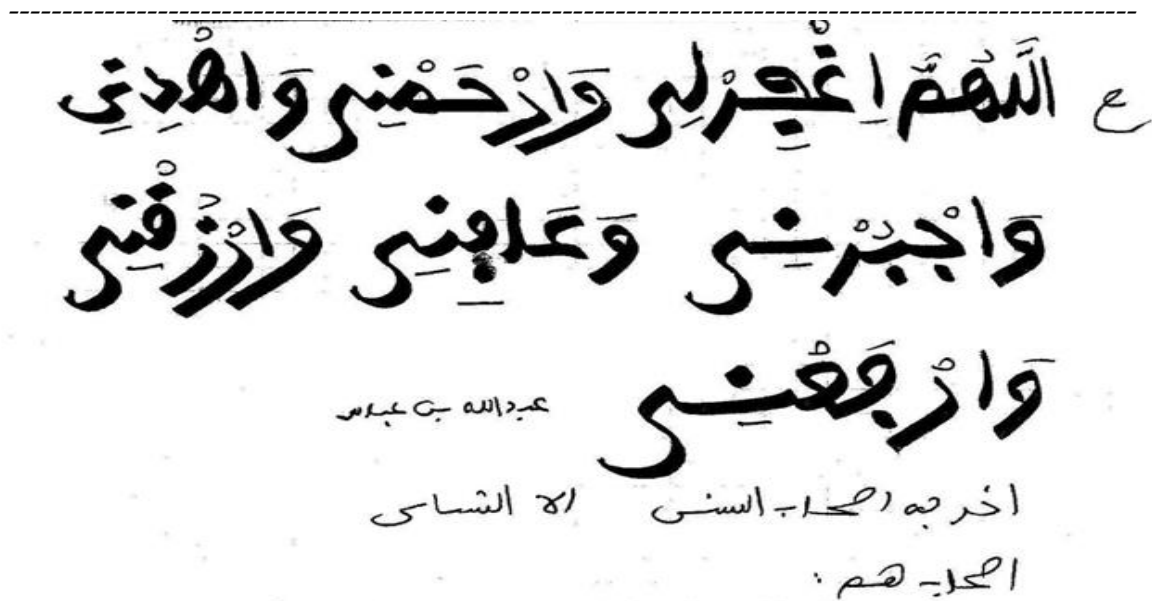 ع اللَّهُمَّ اِغْفِرْلِي وَارْحَمْنِي وَاهْدِنِي
وَاجْبُرْنِي وَعَافِنِي وَارْزُقْنِي
وَارْفَعْنِي عبدالله بن عباس
اخرجه اصحاب السنن الا النسائى
اصحاب هم :